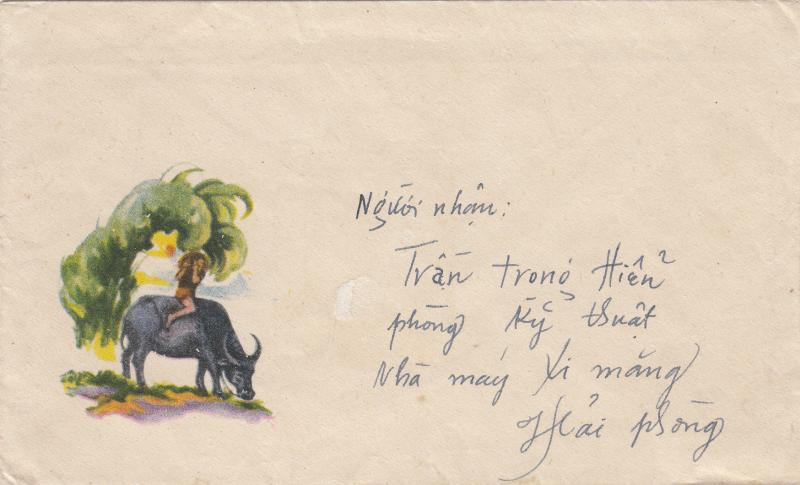 Người nhận:
Trần trọng Hiển
phòng Kỹ thuật
Nhà máy Xi măng
Hải phòng